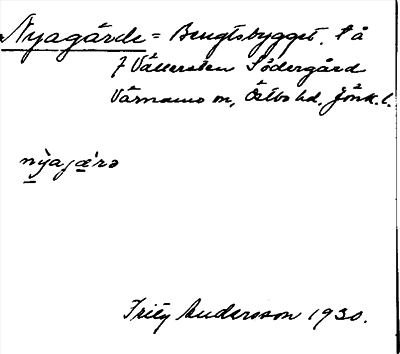 Nyagärde = Bengtsbygget. t å
7 Vällersten Södergård
Värnamo m, Östbo hd. Jönk. l.
nỳajæ'rə
Fritz Andersson 1930.